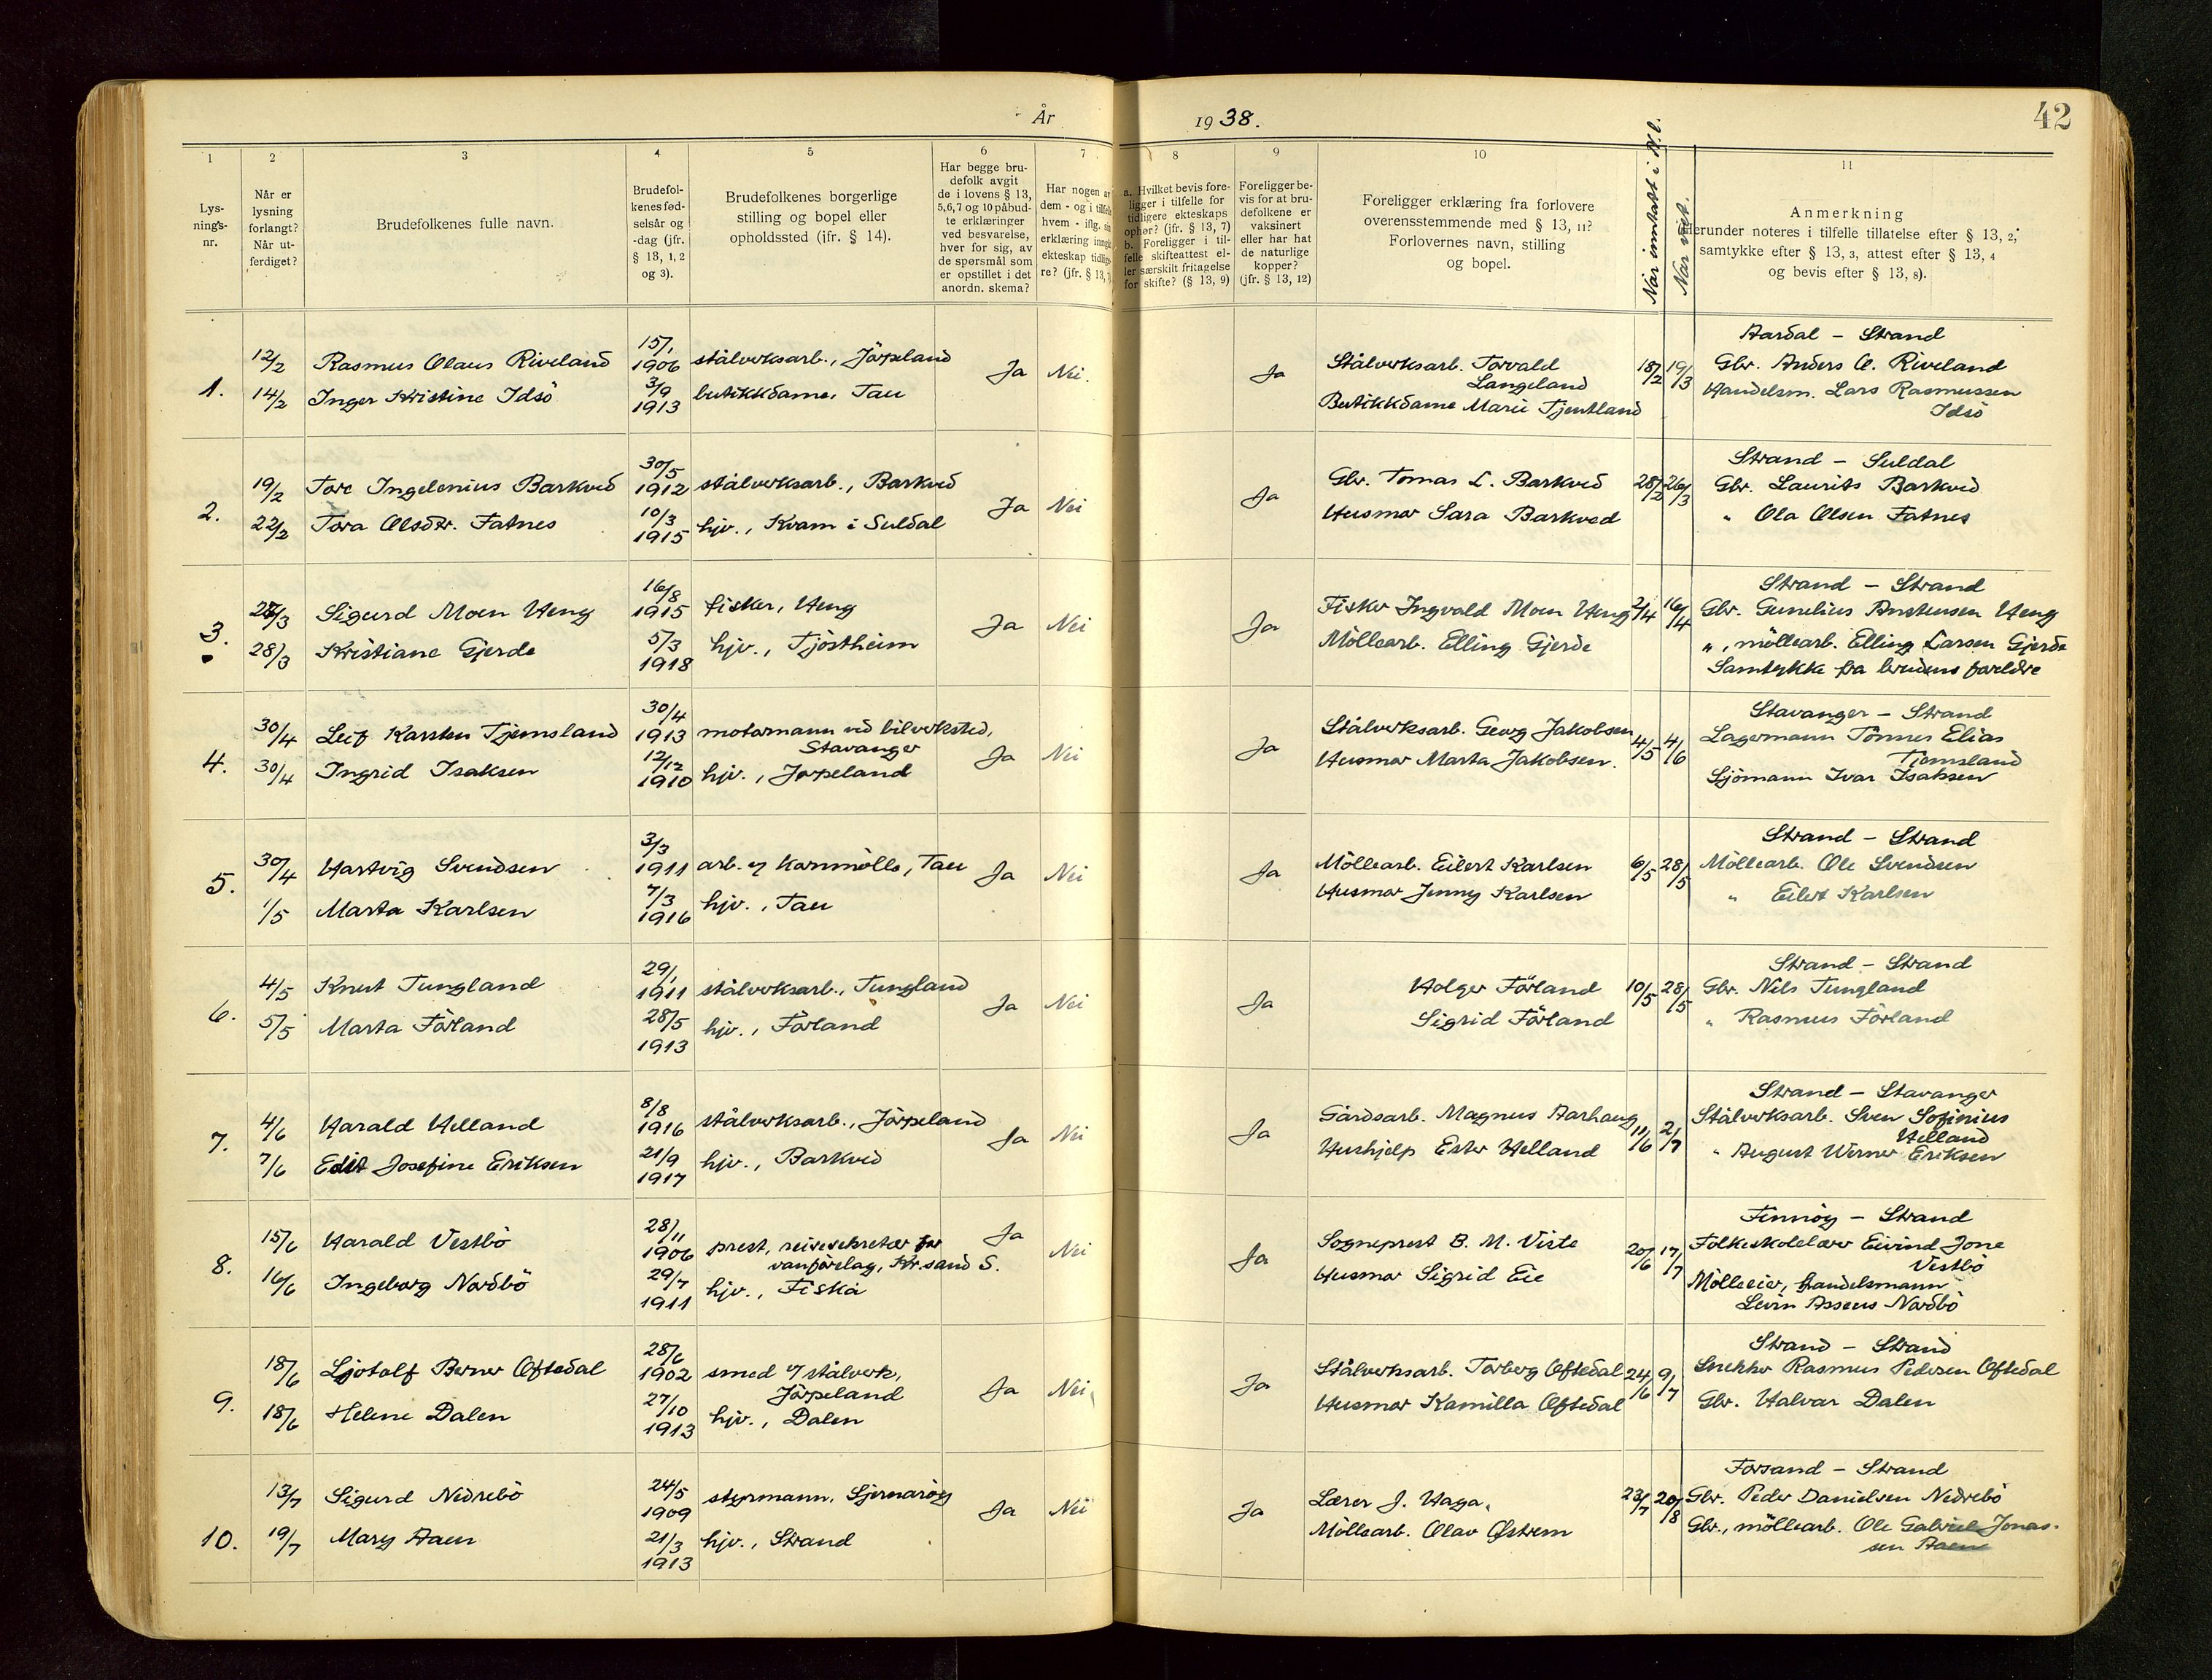 År 1938.
42
1 2 3 4 5 6 7 8 9 10 11
Lysnings-nr.
Når er lysning forlangt? Når utferdiget?
Brudefolkenes fulle navn.
Brudefolkenes fødselsår og -dag (jfr. § 13, 1, 2 og 3).
Brudefolkenes borgerlige stilling og bopel eller opholdssted (ifr. § 14).
Har begge brudefolk avgit de i lovens § 13, 5,6,7 og 10 påbudte erklæringer ved besvarelse, hver for sig, av de spørsmål som er opstillet i det anordn. skema?
Har nogen av dem - og i tilfelle hvem - iflg. sin erklæring inngått ekteskap tidligere? (jfr. § 13,
a. Hvilket bevis foreligger i tilfelle for tidligere ekteskaps ophør? (jfr. § 13, 7) b. Foreligger i tilfelle skifteattest eller særskilt fritagelse for skifte? (§ 13, 9)
Foreligger bevis for at brudefolkene er vaksinert eller har hat de naturlige kopper? (jfr. § 13, 12)
Foreligger erklæring fra forlovere overensstemmende med § 13, 11? Forlovernes navn, stilling og bopel.
Når inntatt i N.l.
Når viet.
Anmerkning
Herunder noteres i tilfelle tillatelse efter § 13, 2, samtykke efter § 13, 3, attest efter § 13, 4 og bevis efter § 13, 8).
Aardal - Strand
1. 12/2 Rasmus Olaus Riveland 15/1 1906 stålverksarb., Jörpeland Ja Nei. Ja Stålverksarb. Torvald Langeland 18/2 19/3 Gbr. Anders O. Riveland
14/2 Inger Kristine Idsö 3/9 1913 butikkdame, Tau Butikkdame Marie Tjentland Handelsm. Lars Rasmussen Idsö
Strand - Suldal
2. 19/2 Tore Ingelenius Barkved 30/5 1912 stålverksarb., Barkved Ja Nei Ja Gbr. Tomas L. Barkved 28/2 26/3 Gbr. Laurits Barkved
22/2 Tora Olsdtr. Fatnes 10/3 1915 hjv., Kvam i Suldal Husmor Sara Barkved " Ola Olsen Fatnes
Strand - Strand
3. 28/3 Sigurd Moen Heng 16/8 1915 fisker, Heng Ja Nei Ja Fisker Ingvald Moen Heng 2/4 16/4 Gbr. Gunelius Anstensen Heng
28/3 Kristiane Gjerde 5/3 1918 hjv., Tjöstheim Möllearb. Elling Gjerde ", möllearb. Elling Larsen Gjerde
Samtykke fra brudens foreldre
Stavanger - Strand
4. 30/4 Leif Karsten Tjemsland 30/4 1913 motormann ved bilverksted, Stavanger Ja Nei Ja Stålverksarb. Georg Jakobsen 4/5 4/6 Lagermann Tönnes Elias Tjemsland
30/4 Ingrid Isaksen 12/12 1910 hjv., Jörpeland Husmor Marta Jakobsen. Sjömann Ivar Isaksen
Strand - Strand
5. 30/4 Hartvig Svendsen 3/3 1911 arb. v/ kornmölle, Tau Ja Nei Ja Möllearb. Eilert Karlsen 6/5 28/5 Möllearb. Ole Svendsen
1/5 Marta Karlsen 7/3 1916 hjv., Tau Husmor Jenny Karlsen " Eilert Karlsen
Strand - Strand
6. 4/5 Knut Tungland 29/1 1911 stålverksarb., Tungland Ja Nei Ja Holger Förland 10/5 28/5 Gbr. Nils Tungland
5/5 Marta Förland 28/5 1913 hjv., Förland Sigrid Förland " Rasmus Förland
Strand - Stavanger
7. 4/6 Harald Helland 8/8 1916 stålverksarb., Jörpeland Ja Nei Ja Gårdsarb. Magnus Aarhaug 11/6 2/7 Stålverksarb. Sven Sofinius Helland
7/6 Edit Josefine Eriksen 21/9 1917 hjv., Barkved Hushjelp Ester Helland " August Werner Eriksen
Finnöy - Strand
8. 15/6 Harald Vestbö 28/11 1906 prest, reisesekretær for vanförelag, Kr.sand S. Ja Nei Ja Sogneprest B. M. Viste 20/6 17/7 Folkeskolelærer Eivind Jone Vestbö
16/6 Ingeborg Nordbö 29/7 1911 hjv., Fiskå Husmor Sigrid Eie Mölleeier, handelsmann Levin Asseus Nordbö
Strand - Strand
9. 18/6 Ljotolf Berner Oftedal 28/6 1902 smed v/ stålverk, Jörpeland Ja Nei Ja Stålverksarb. Torberg Oftedal 24/6 9/7 Snekker Rasmus Pedersen Oftedal
18/6 Helene Dalen 27/10 1913 hjv., Dalen Husmor Kamilla Oftedal Gbr. Halvar Dalen
Forsand - Strand
10. 13/7 Sigurd Nedrebö 24/5 1909 styrmann, Sjernaröy Ja Nei Ja Lærer J. Haga. 23/7 20/8 Gbr. Peder Danielsen Nedrebö
19/7 Mary Aaen 21/3 1913 hjv., Strand Möllearb. Olav Østrem Gbr., möllearb. Ole Gabriel Jonassen Aaen